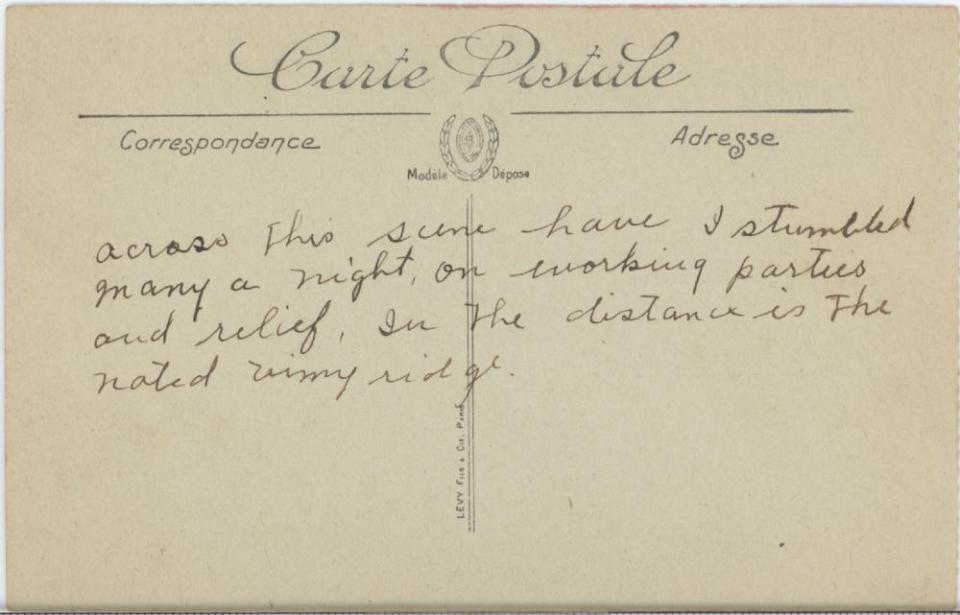 Carte Postale
Correspondance
Adresse
Modèle Déposé
across this scene have I stumbled
many a night, on working parties
and relief. In the distance is the
noted vimy ridge.
LEVY FILS & CIE. PARIS